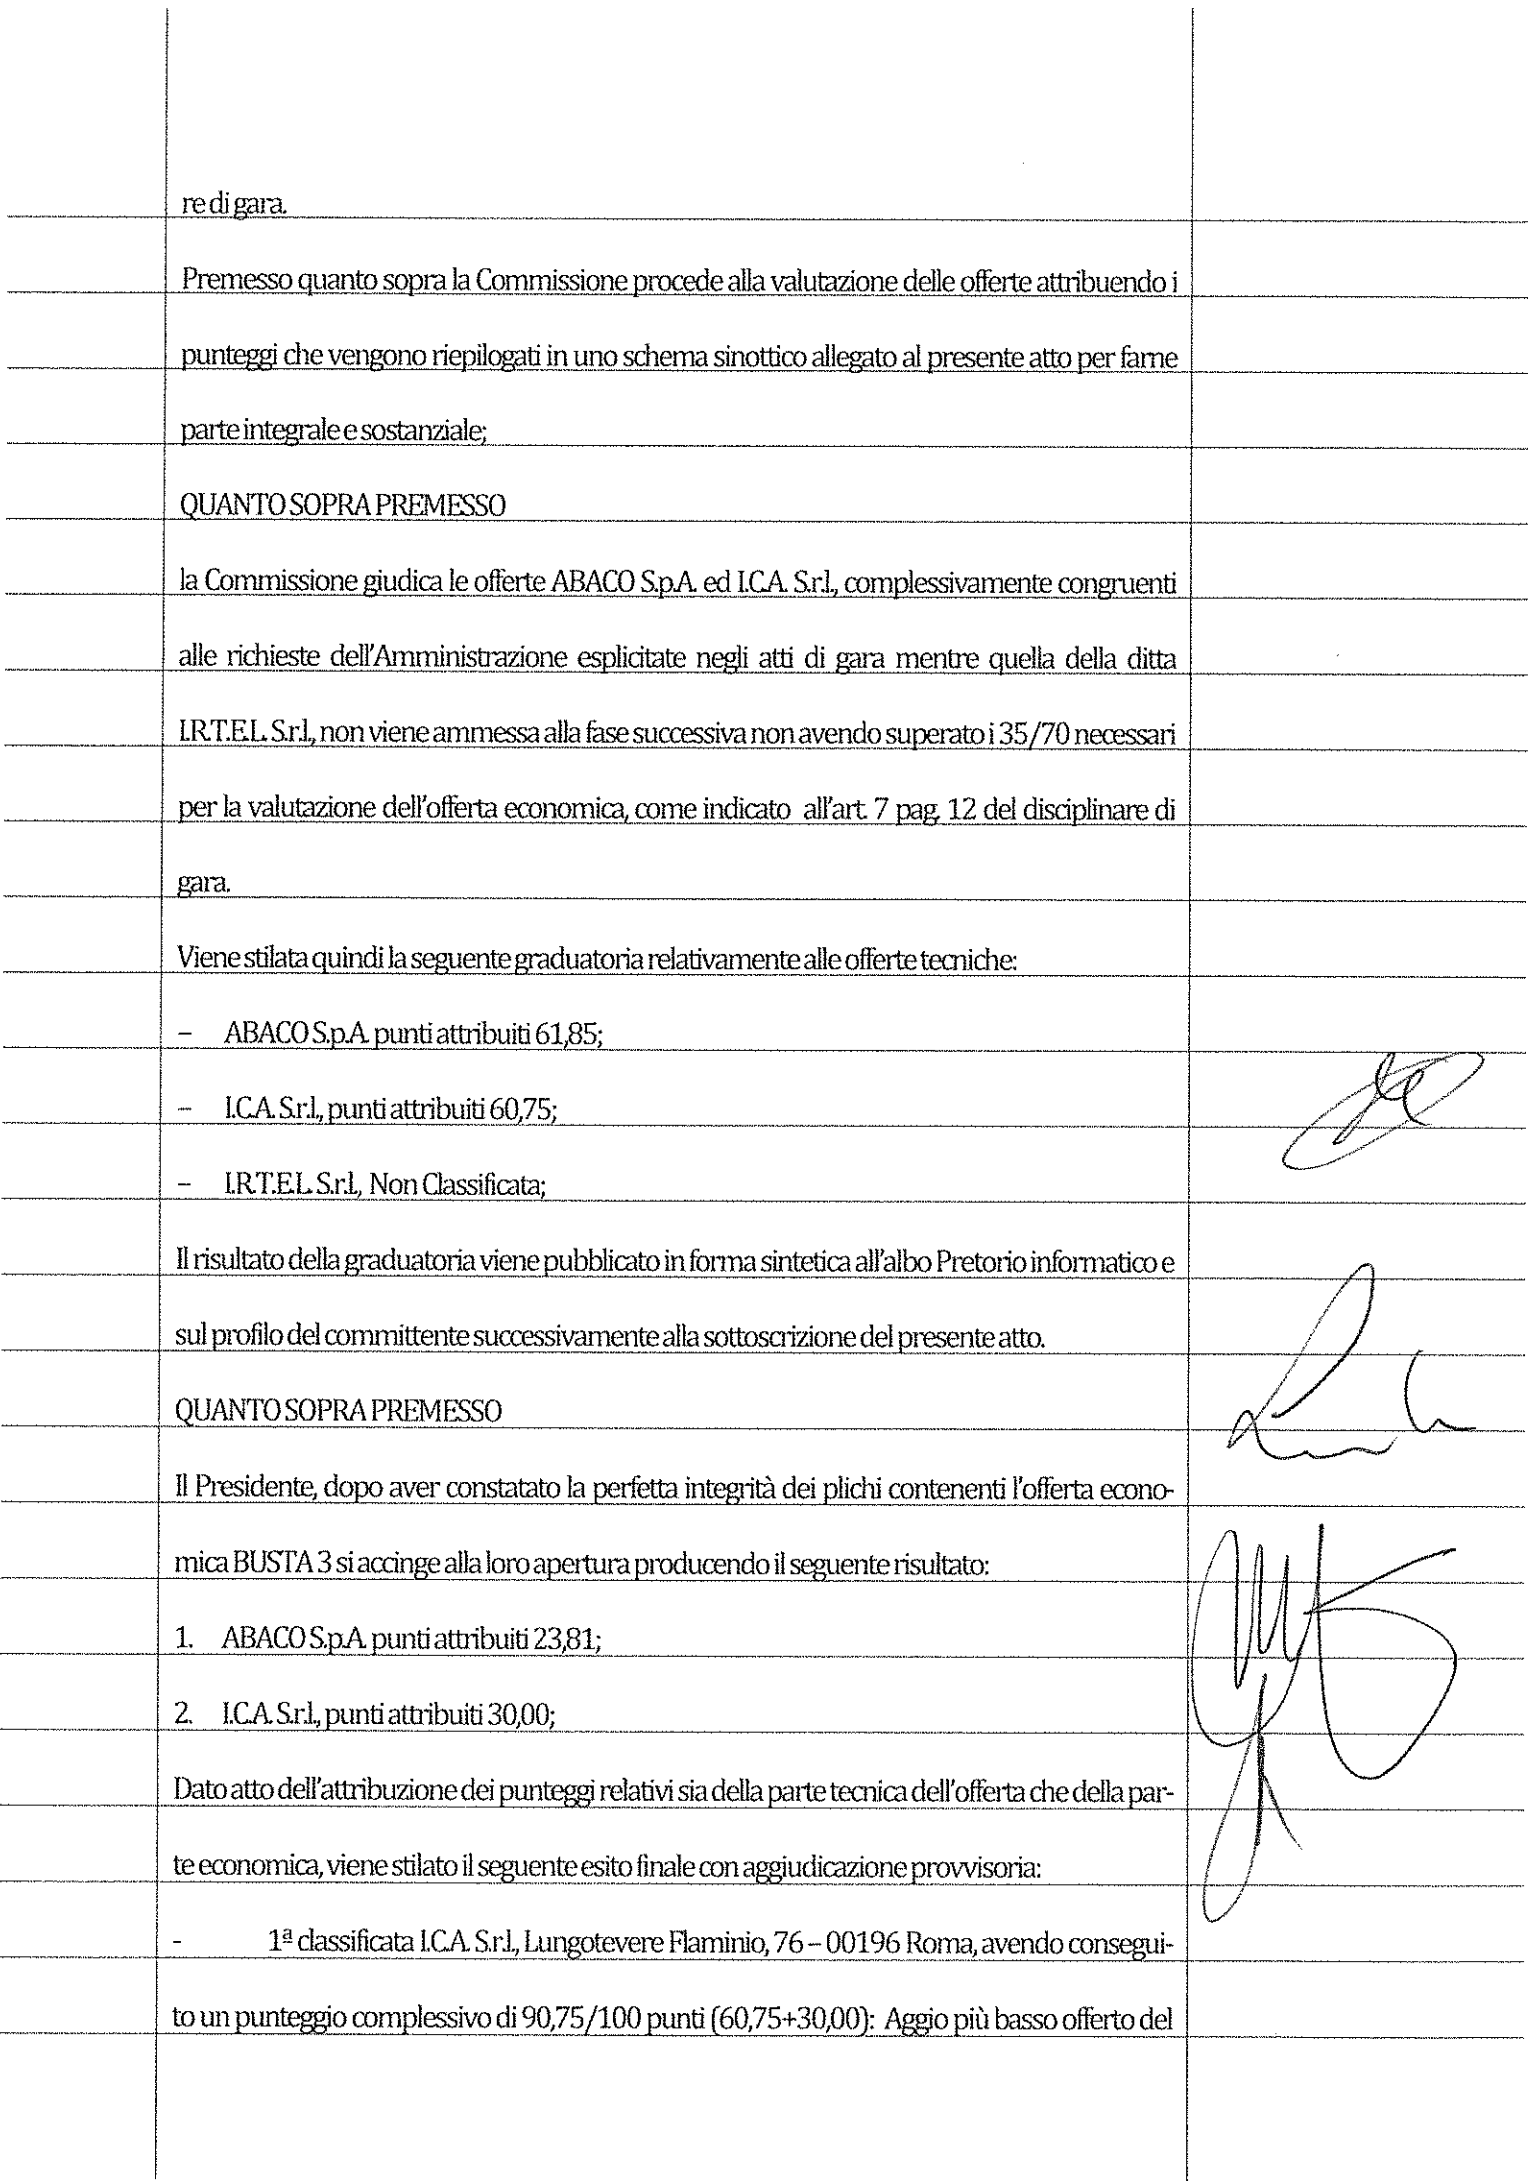 re di gara.
Premesso quanto sopra la Commissione procede alla valutazione delle offerte attribuendo i
punteggi che vengono riepilogati in uno schema sinottico allegato al presente atto per farne
parte integrale e sostanziale;
QUANTO SOPRA PREMESSO
la Commissione giudica le offerte ABACO S.p.A. ed I.C.A. S.r.l., complessivamente congruenti
alle richieste dell'Amministrazione esplicitate negli atti di gara mentre quella della ditta
I.R.T.E.L. S.r.l., non viene ammessa alla fase successiva non avendo superato i 35/70 necessari
per la valutazione dell'offerta economica, come indicato all'art. 7 pag. 12 del disciplinare di
gara.
Viene stilata quindi la seguente graduatoria relativamente alle offerte tecniche:
– ABACO S.p.A. punti attribuiti 61,85;
– I.C.A. S.r.l., punti attribuiti 60,75;
– I.R.T.E.L. S.r.l., Non Classificata;
Il risultato della graduatoria viene pubblicato in forma sintetica all'albo Pretorio informatico e
sul profilo del committente successivamente alla sottoscrizione del presente atto.
QUANTO SOPRA PREMESSO
Il Presidente, dopo aver constatato la perfetta integrità dei plichi contenenti l'offerta econo-
mica BUSTA 3 si accinge alla loro apertura producendo il seguente risultato:
1. ABACO S.p.A. punti attribuiti 23,81;
2. I.C.A. S.r.l., punti attribuiti 30,00;
Dato atto dell'attribuzione dei punteggi relativi sia della parte tecnica dell'offerta che della par-
te economica, viene stilato il seguente esito finale con aggiudicazione provvisoria:
- 1ª classificata I.C.A. S.r.l., Lungotevere Flaminio, 76 – 00196 Roma, avendo consegui-
to un punteggio complessivo di 90,75/100 punti (60,75+30,00): Aggio più basso offerto del